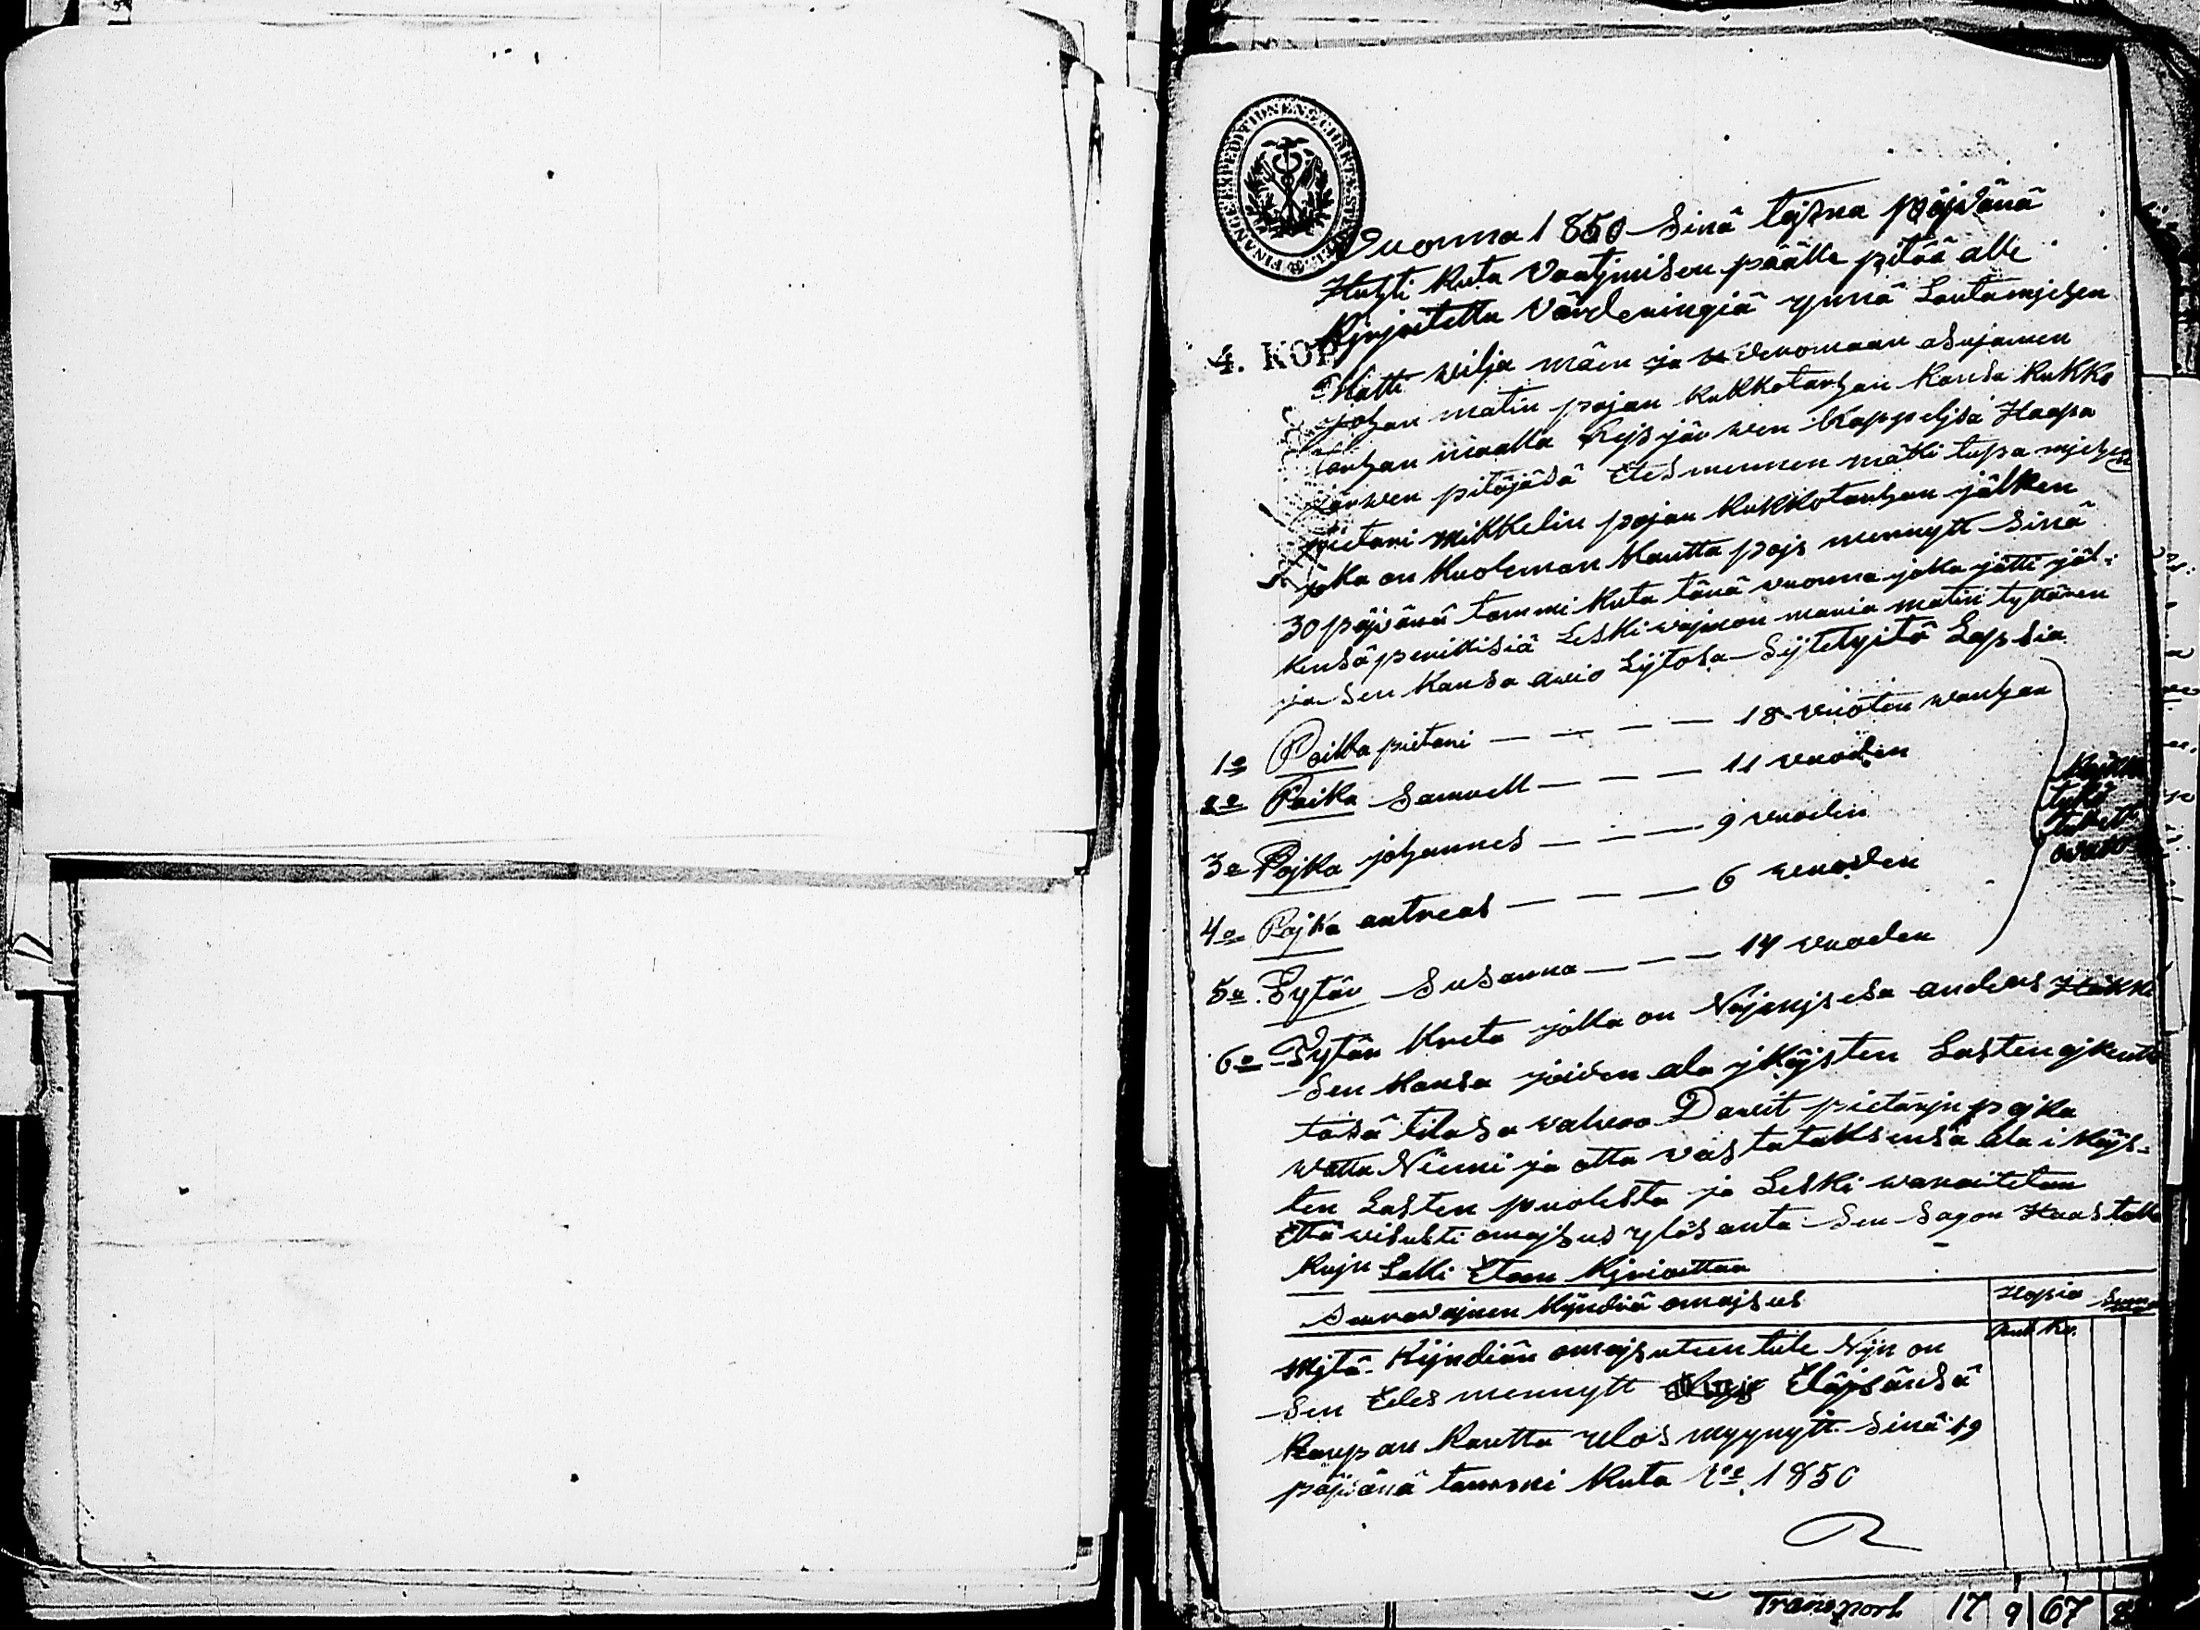 FINANCE EXPEDITIONENS CHARTÆ
4. KOP.
Vuonna 1850 Sinä päjvänä
Huhti Kuta Vaatjmisen päälle pitää alle
Kirjoitettu Värderingiä ynnä Lautamjehen
Matti Vilja mäen ja venomaan asujamen
johan matin pojan Kukkotarhan Kansa Kukko
tarhan maalla Rejsjärwen Kappeljsa Haapa
järwen pitäjäsä Edesmennen mätli tupa mjehen
pietari mikkelin pojan Kukkotarhan jälken
joka on Kuoleman Kautta pojs mennytt Sinä
30 päjvänä tammi Kuta tänä vuonna joka jätti jäl:
kensä perillisiä Leski vajmon maria matin tyttären
ja Sen Kansa avio Lijtosa Sijtetyitä Lapsia
1o Poika pietari — — — — 18 vuoton wanhan
2o Poika Samuell — — — 11 vuoden
3o Pojka johannes — — — 9 vuoden
4o Pojka antreas — — — 6 vuoden
5o Tytär Susanna — — — 14 vuoden
tykö
6o Tytär Kreta jolka on Najmjsesa anders
Sen Kansa joiden ala jkäjsten Lasten
täsä tilasa valvoo Davit pietarjn pojka
Niemi ja otta vastataksensa ala i Käjs-
ten Lasten puolesta ja Leski waroitetan
Että visusti omajsus ylösanta Sen Sagon
Kujn Laki Eteen Kirioittaa
Seuravajnen Kijndiä omajsus
Hopia Summa
Rub Ko.
Mjtä Kijndiän omajsuteen tule Nijn on
Sen Edes mennytt Eläjsänsä
Kaupan Kautta Ulos myynytt Sinä 19
päjvänä tammi Kuta 1850
Transport 17 9 67